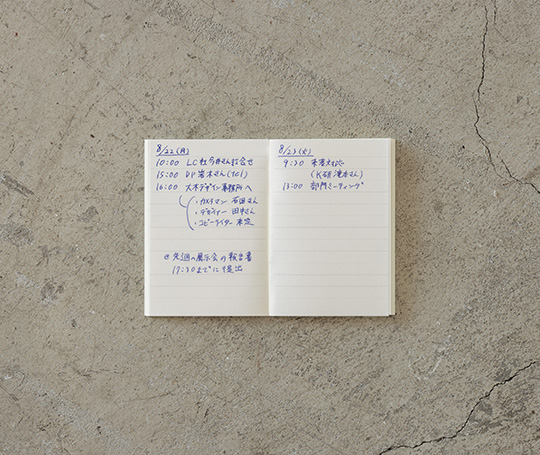 8/22(月)
10:00 LC社今井さん打合せ
15:00 DP岩本さん(tel)
16:00 大木デザイン事務所へ
・カメラマン 石田さん
・デザイナー 田中さん
・コピーライター 未定
先週の展示会の報告書
17:30までに提出
8/23(火)
9:30 来客対応
(K研 滝本さん)
13:00 部門ミーティング